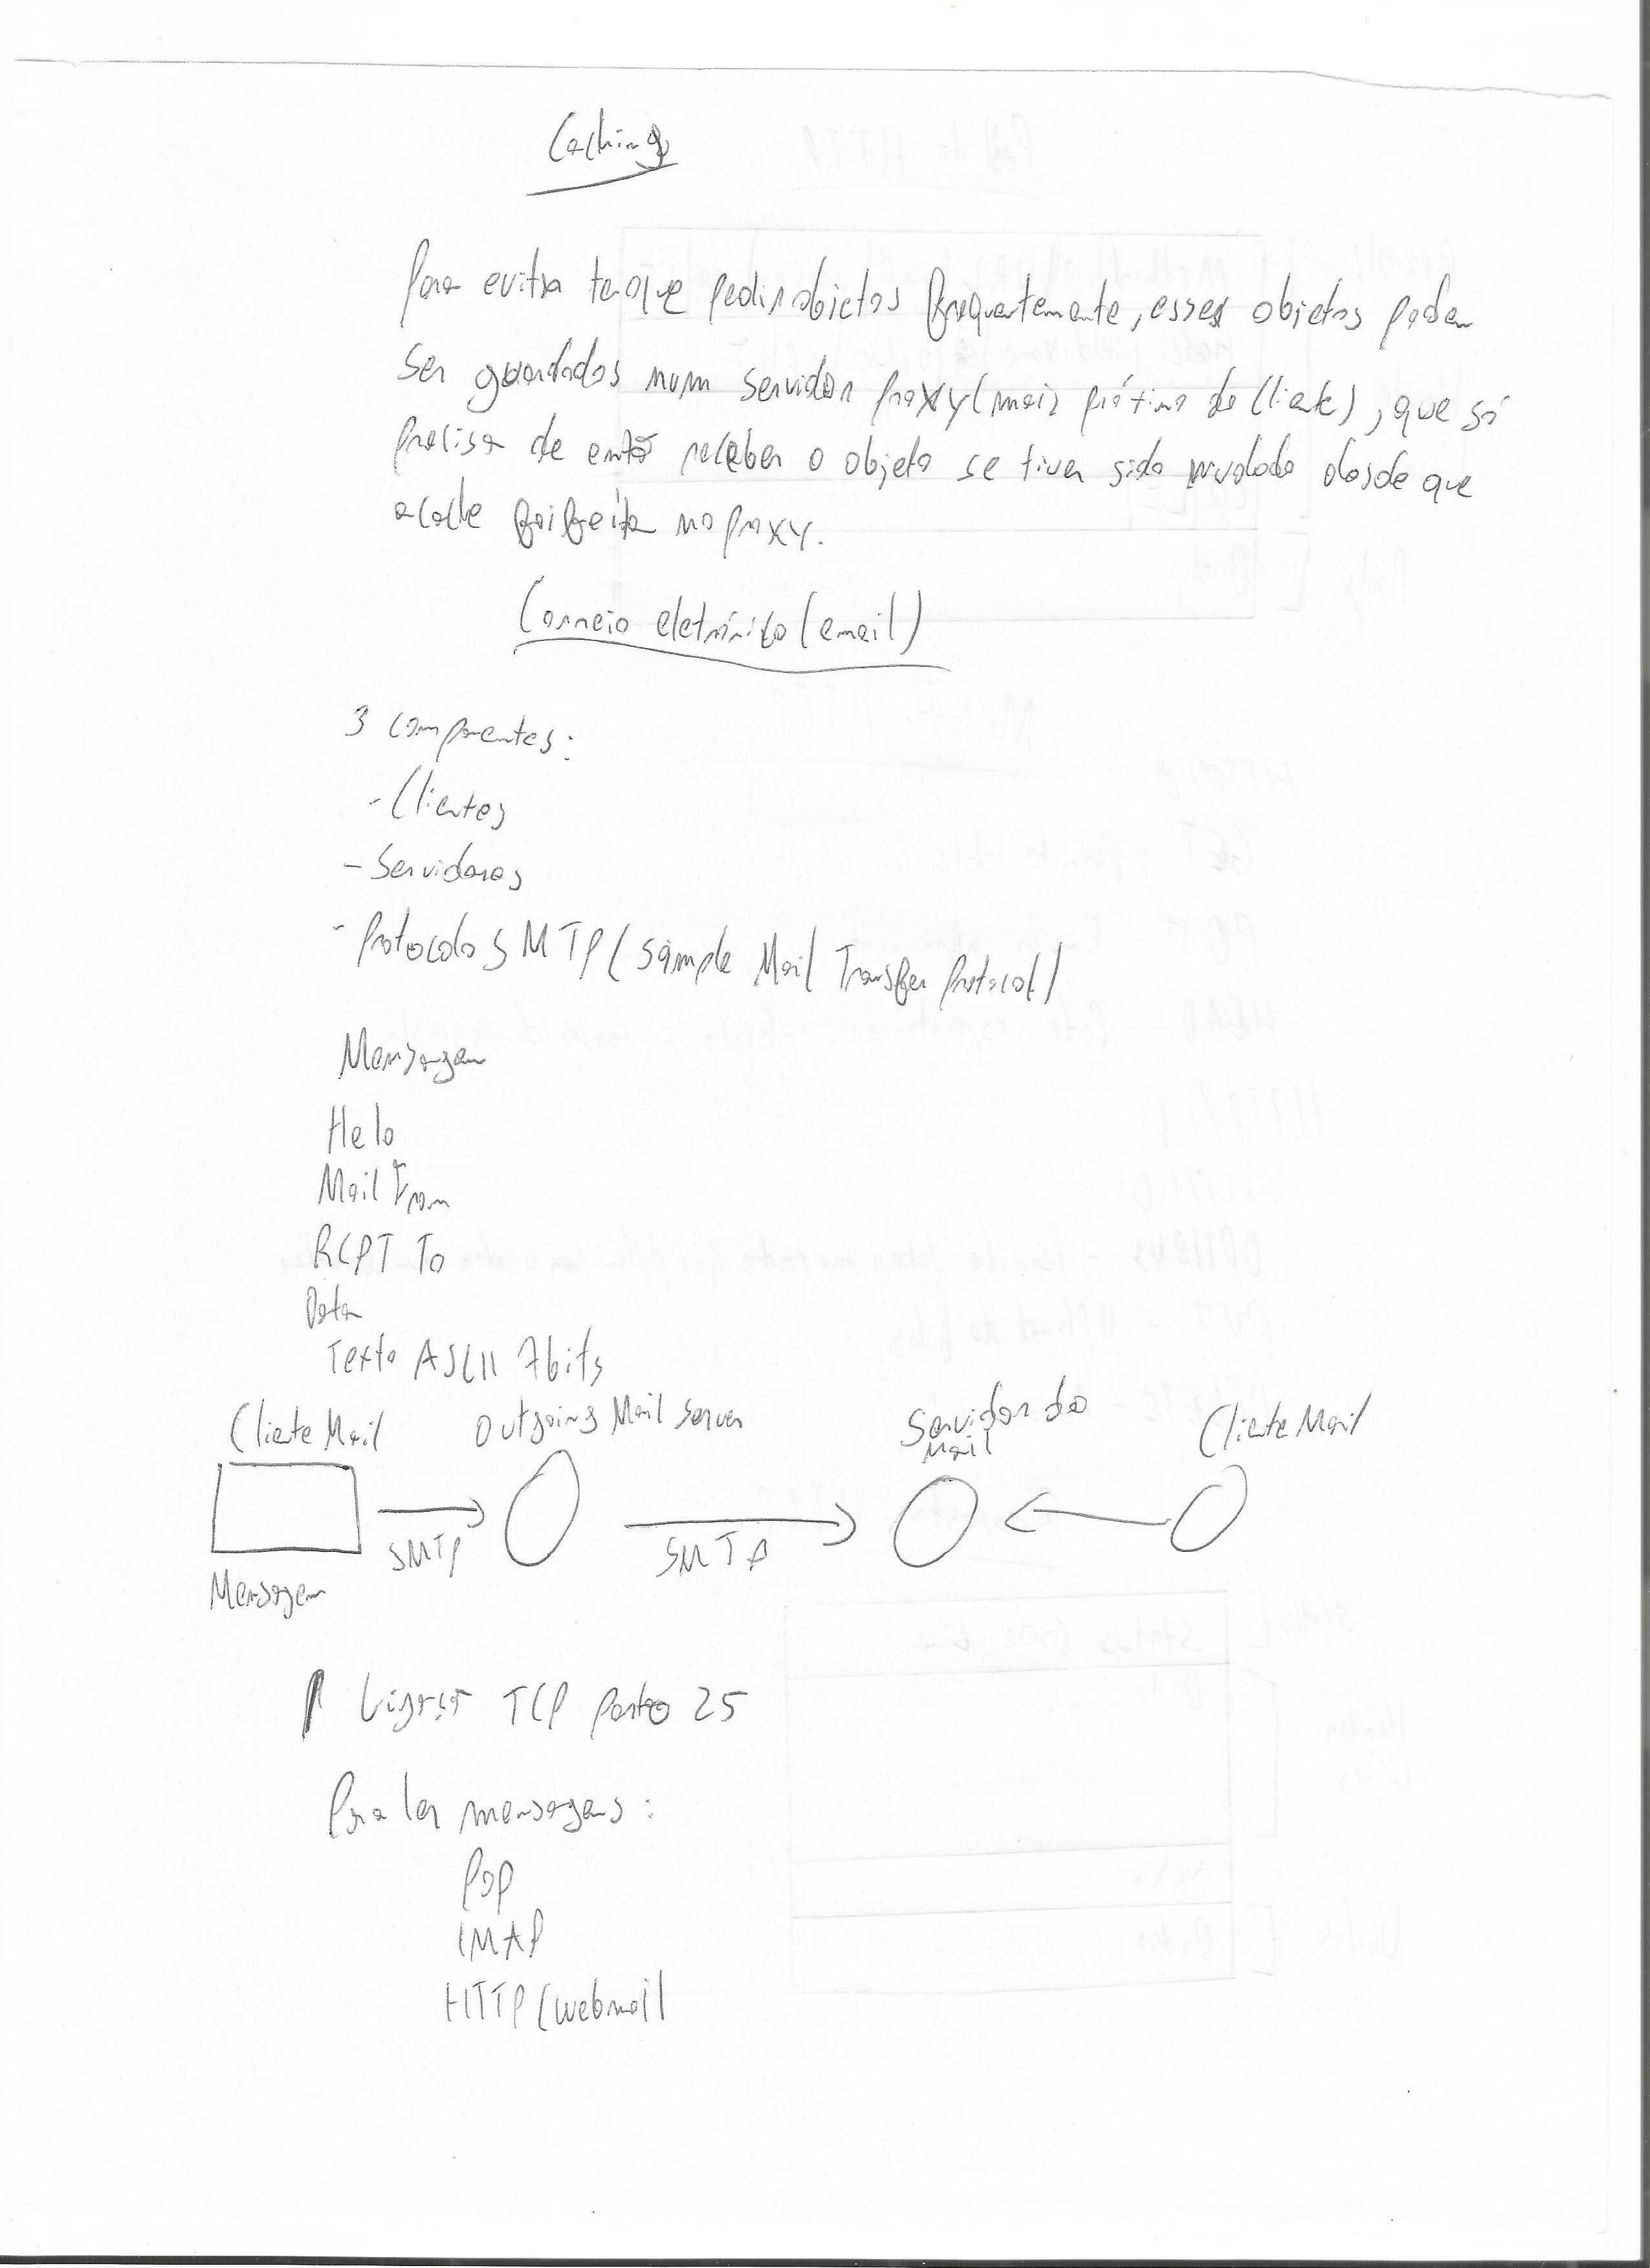 Caching
Para evitar ter que pedir objetos frequentemente, esses objetos podem
ser guardados num servidor proxy (mais próximo do cliente), que só
precisa de então receber o objeto se tiver sido mudado desde que
a cache foi feita no proxy.
Correio eletrónico (email)
3 componentes:
- Clientes
- Servidores
- Protocolo SMTP (Simple Mail Transfer Protocol)
Mensagem
Helo
Mail From
RCPT To
Data
Texto ASCII 7bits
Cliente Mail Outgoing Mail Server Servidor do Cliente Mail
Mail
SMTP SMTP
Mensagem
Ligação TCP porto 25
Para ler mensagens:
POP
IMAP
HTTP (webmail